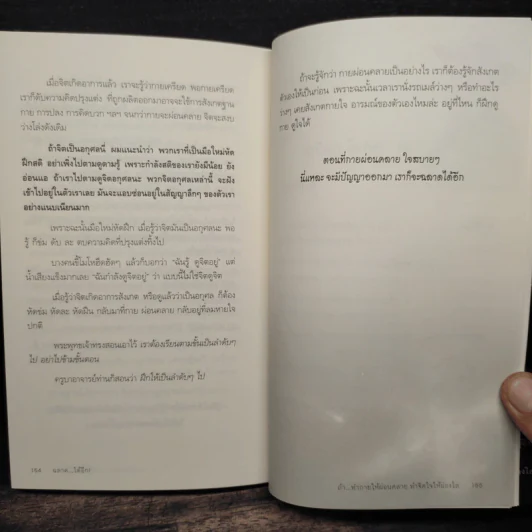 เมื่อจิตเกิดอาการแล้ว เราจะรู้ว่ากายเครียด พอกายเครียด
เราก็ดับความคิดปรุงแต่ง ที่ถูกผลิตออกมาอาจจะใช้การสังเกตฐาน
กาย การปลง การคิดบวก ฯลฯ จนกว่ากายจะผ่อนคลาย จิตจะสงบ
ว่างโล่งดังเดิม
ถ้าจิตเป็นอกุศลนี่ ผมแนะนำว่า พวกเราที่เป็นมือใหม่หัด
ฝึกสติ อย่าเพิ่งไปตามดูตามรู้ เพราะกำลังสติของเรายังมีน้อย ยัง
อ่อนแอ ถ้าเราไปตามดูจิตอกุศลนะ พวกจิตอกุศลเหล่านี้ จะฝัง
เข้าไปอยู่ในตัวเราเลย มันจะแอบซ่อนอยู่ในสัญญาลึกๆ ของตัวเรา
อย่างแนบเนียนมาก
เพราะฉะนั้นมือใหม่หัดฝึก เมื่อรู้ว่าจิตมันเป็นอกุศลนะ พอ
รู้ ก็ข่ม ดับ ละ ตบความคิดที่ปรุงแต่งทิ้งไป
บางคนขี้โมโหฮึดฮัดๆ แล้วก็บอกว่า "ฉันรู้ ดูจิตอยู่" แต่
น้ำเสียงแข็งมากเลย "ฉันกำลังดูจิตอยู่" ว่า แบบนี้ไม่ใช่จิตดูจิต
เมื่อรู้ว่าจิตเกิดอาการสังเกต หรือดูแล้วว่าเป็นอกุศล ก็ต้อง
หัดข่ม หัดละ หัดฝืน กลับมาที่กาย ผ่อนคลาย กลับอยู่ที่ลมหายใจ
ปกติ
พระพุทธเจ้าทรงสอนเอาไว้ เราต้องเรียนตามขั้นเป็นลำดับๆ
ไป อย่าไปข้ามขั้นตอน
ครูบาอาจารย์ท่านก็สอนว่า ฝึกให้เป็นลำดับๆ ไป
194 ฉลาด...ได้อีก
ถ้าจะรู้จักว่า กายผ่อนคลายเป็นอย่างไร เราก็ต้องรู้จักสังเกต
ตัวเองให้เป็นก่อน เพราะฉะนั้นเวลาเรานั่งรถเมล์ว่างๆ หรือทำอะไร
ว่างๆ เคยสังเกตกายใจ อารมณ์ของตัวเองไหมล่ะ อยู่ที่ไหน ก็ฝึกดู
กาย ดูใจได้
ตอนที่กายผ่อนคลาย ใจสบายๆ
นี่แหละ จะมีปัญญาออกมา เราก็จะฉลาดได้อีก
ถ้า...ทำกายให้ผ่อนคลาย ทำจิตใจให้แจ่มใส 195